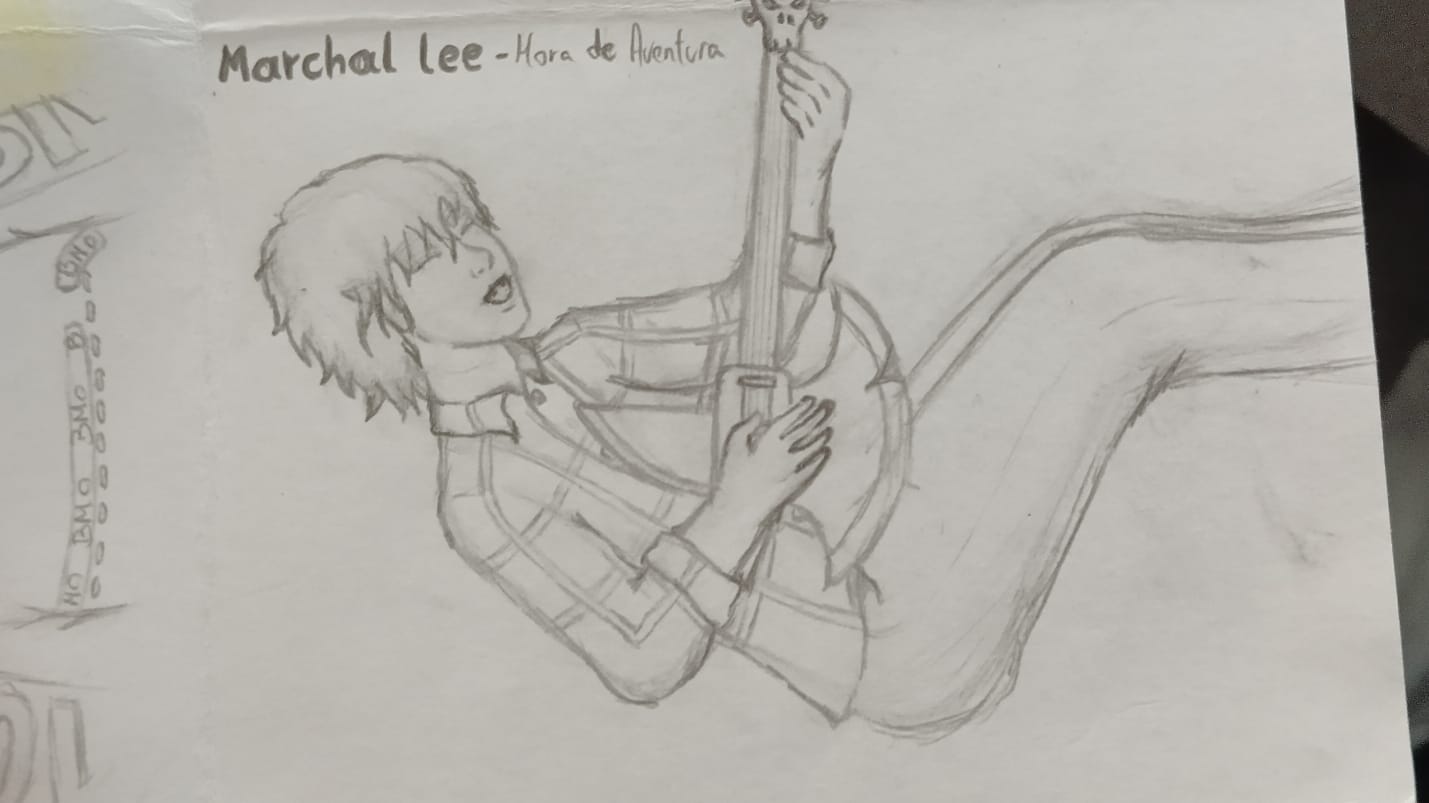 Marchal lee - Hora de Aventura
BMO
BMO BMO